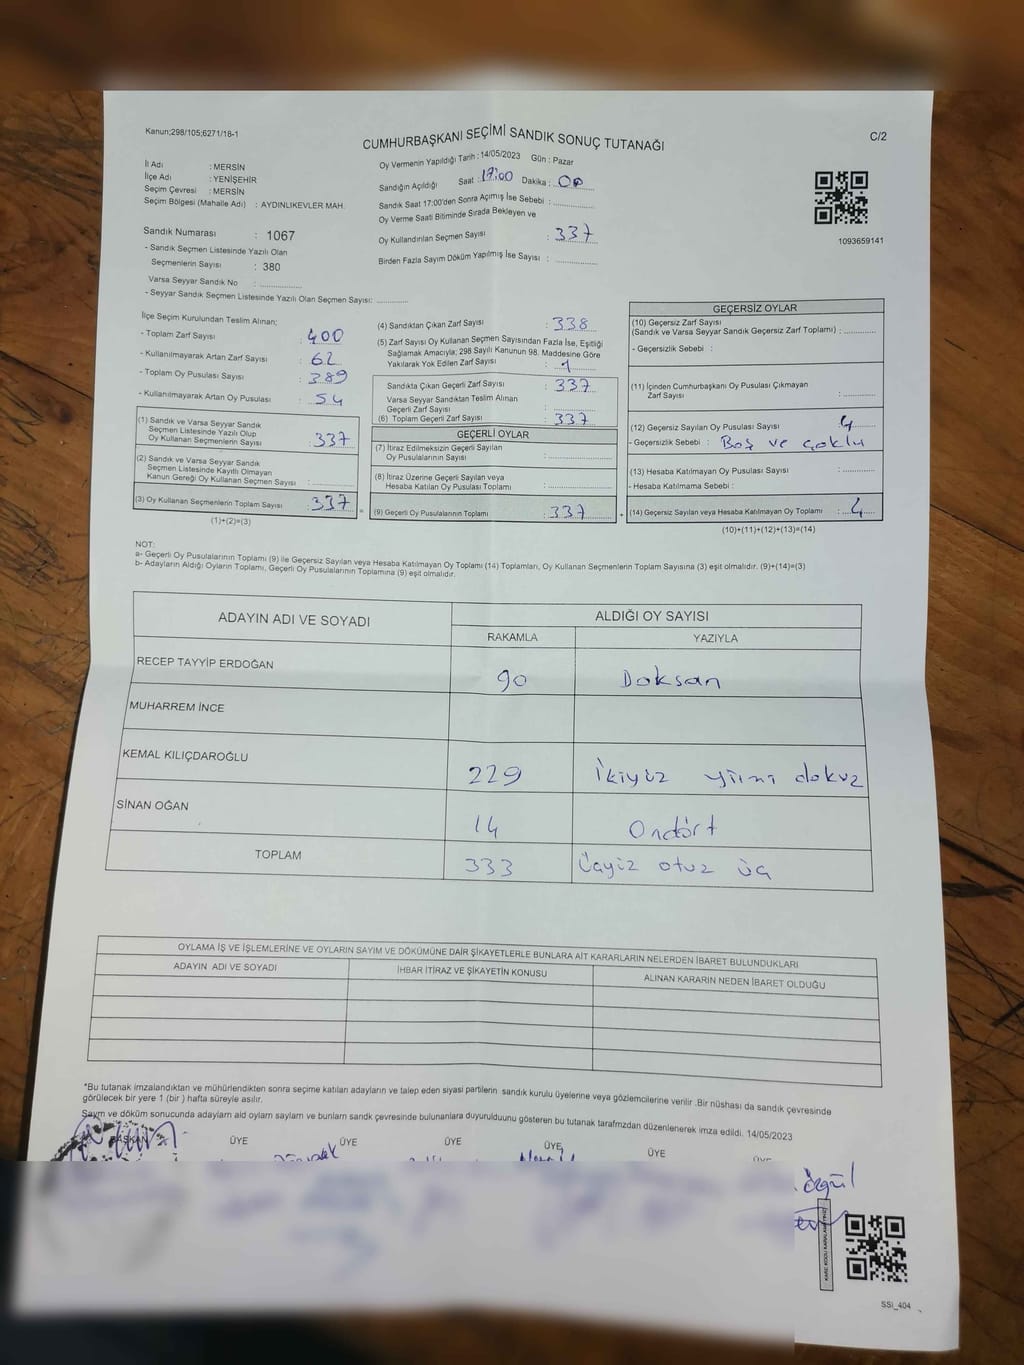 Kanun;298/105;6271/18-1
CUMHURBAŞKANI SEÇİMİ SANDIK SONUÇ TUTANAĞI
C/2
İl Adı : MERSİN
İlçe Adı : YENİŞEHİR
Seçim Çevresi : MERSİN
Seçim Bölgesi (Mahalle Adı) : AYDINLIKEVLER MAH.
Sandık Numarası : 1067
- Sandık Seçmen Listesinde Yazılı Olan
Seçmenlerin Sayısı : 380
Varsa Seyyar Sandık No : ..............
- Seyyar Sandık Seçmen Listesinde Yazılı Olan Seçmen Sayısı: ..............
Oy Vermenin Yapıldığı Tarih : 14/05/2023 Gün : Pazar
Sandığın Açıldığı Saat : 17:00 Dakika : 00
Sandık Saat 17:00'den Sonra Açımış İse Sebebi : ..............
Oy Verme Saati Bitiminde Sırada Bekleyen ve
Oy Kullandırılan Seçmen Sayısı : 337
Birden Fazla Sayım Döküm Yapılmış İse Sayısı : ..............
1093659141
İlçe Seçim Kurulundan Teslim Alınan;
- Toplam Zarf Sayısı : 400
- Kullanılmayarak Artan Zarf Sayısı : 62
- Toplam Oy Pusulası Sayısı : 389
- Kullanılmayarak Artan Oy Pusulası : 54
(1) Sandık ve Varsa Seyyar Sandık
Seçmen Listesinde Yazılı Olup
Oy Kullanan Seçmenlerin Sayısı : 337
(2) Sandık ve Varsa Seyyar Sandık
Seçmen Listesinde Kayıtlı Olmayan
Kanun Gereği Oy Kullanan Seçmen Sayısı : ..............
(3) Oy Kullanan Seçmenlerin Toplam Sayısı : 337
(1)+(2)=(3)
(4) Sandıktan Çıkan Zarf Sayısı : 338
(5) Zarf Sayısı Oy Kullanan Seçmen Sayısından Fazla İse, Eşitliği
Sağlamak Amacıyla; 298 Sayılı Kanunun 98. Maddesine Göre
Yakılarak Yok Edilen Zarf Sayısı : 1
Sandıkta Çıkan Geçerli Zarf Sayısı : 337
Varsa Seyyar Sandıktan Teslim Alınan
Geçerli Zarf Sayısı : ..............
(6) Toplam Geçerli Zarf Sayısı : 337
GEÇERLİ OYLAR
(7) İtiraz Edilmeksizin Geçerli Sayılan
Oy Pusulalarının Sayısı : ..............
(8) İtiraz Üzerine Geçerli Sayılan veya
Hesaba Katılan Oy Pusulası Toplamı : ..............
= (9) Geçerli Oy Pusulalarının Toplamı : 337 +
GEÇERSİZ OYLAR
(10) Geçersiz Zarf Sayısı
(Sandık ve Varsa Seyyar Sandık Geçersiz Zarf Toplamı) : ..............
- Geçersizlik Sebebi :
(11) İçinden Cumhurbaşkanı Oy Pusulası Çıkmayan
Zarf Sayısı : ..............
(12) Geçersiz Sayılan Oy Pusulası Sayısı : 4
- Geçersizlik Sebebi : Boş ve çoklu
(13) Hesaba Katılmayan Oy Pusulası Sayısı : ..............
- Hesaba Katılmama Sebebi :
(14) Geçersiz Sayılan veya Hesaba Katılmayan Oy Toplamı : 4
(10)+(11)+(12)+(13)=(14)
NOT:
a- Geçerli Oy Pusulalarının Toplamı (9) ile Geçersiz Sayılan veya Hesaba Katılmayan Oy Toplamı (14) Toplamları, Oy Kullanan Seçmenlerin Toplam Sayısına (3) eşit olmalıdır. (9)+(14)=(3)
b- Adayların Aldığı Oyların Toplamı, Geçerli Oy Pusulalarının Toplamına (9) eşit olmalıdır.
ADAYIN ADI VE SOYADI ALDIĞI OY SAYISI
RAKAMLA YAZIYLA
RECEP TAYYİP ERDOĞAN 90 Doksan
MUHARREM İNCE
KEMAL KILIÇDAROĞLU 229 İkiyüz yirmi dokuz
SİNAN OĞAN 14 Ondört
TOPLAM 333 Üçyüz otuz üç
OYLAMA İŞ VE İŞLEMLERİNE VE OYLARIN SAYIM VE DÖKÜMÜNE DAİR ŞİKAYETLERLE BUNLARA AİT KARARLARIN NELERDEN İBARET BULUNDUKLARI
ADAYIN ADI VE SOYADI İHBAR İTİRAZ VE ŞİKAYETİN KONUSU ALINAN KARARIN NEDEN İBARET OLDUĞU
*Bu tutanak imzalandıktan ve mühürlendikten sonra seçime katılan adayların ve talep eden siyasi partilerin sandık kurulu üyelerine veya gözlemcilerine verilir .Bir nüshası da sandık çevresinde
görülecek bir yere 1 (bir ) hafta süreyle asılır.
Sayım ve döküm sonucunda adayların ald oyların sayları ve bunların sandk çevresinde bulunanlara duyurulduunu gösteren bu tutanak tarafmzdan düzenlenerek imza edildi. 14/05/2023
BAŞKAN ÜYE ÜYE ÜYE ÜYE ÜYE ÜYE
SSİ_404